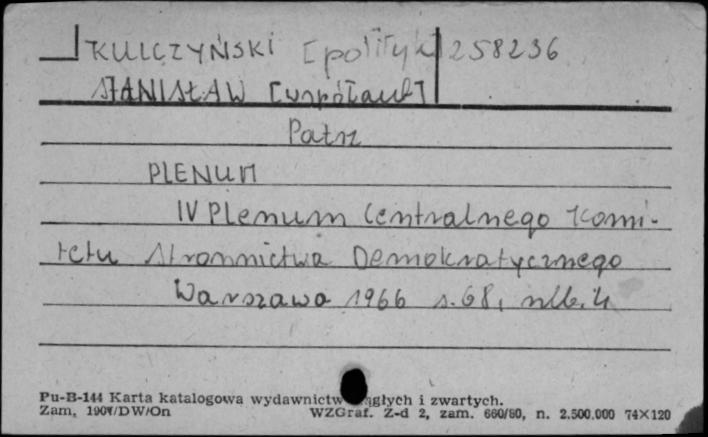 KULCZYŃSKI [polityk] 258236
STANISŁAW [współaut]
Patrz
PLENUM
IV Plenum Centralnego Komi-
tetu Stronnictwa Demokratycznego
Warszawa 1966 s. 68, nlb. 4
Pu-B-144 Karta katalogowa wydawnictw ciągłych i zwartych.
Zam. 1907/DW/On WZGraf. Z-d 2, zam. 660/80, n. 2.500.000 74×120